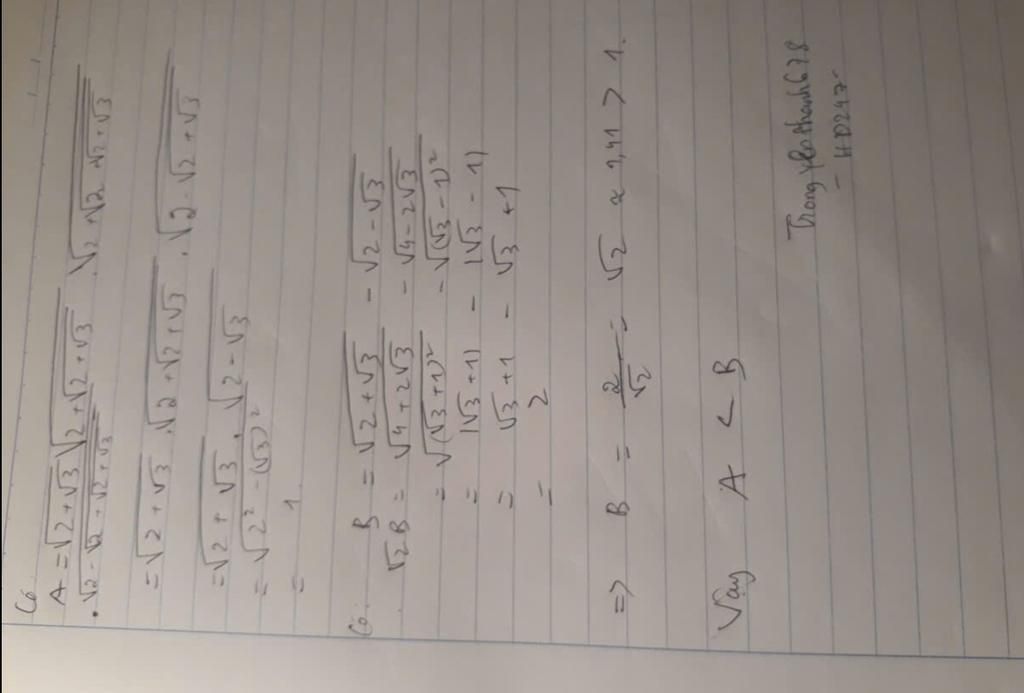 Có
A = √(2+√3) . √(2+√(2+√3)) . √(2+√(2+√(2+√3)))
. √(2-√(2+√(2+√3)))
= √(2+√3) . √(2+√(2+√3)) . √(2-√(2+√3))
= √(2+√3) . √(2-√3)
= √(2² - (√3)²)
= 1
Có. B = √(2+√3) - √(2-√3)
√2B = √(4+2√3) - √(4-2√3)
= √((√3+1)²) - √((√3-1)²)
= |√3+1| - |√3-1|
= √3+1 - √3+1
= 2
=> B = 2/√2 = √2 ≈ 1,41 > 1.
Vậy A < B
- HD247